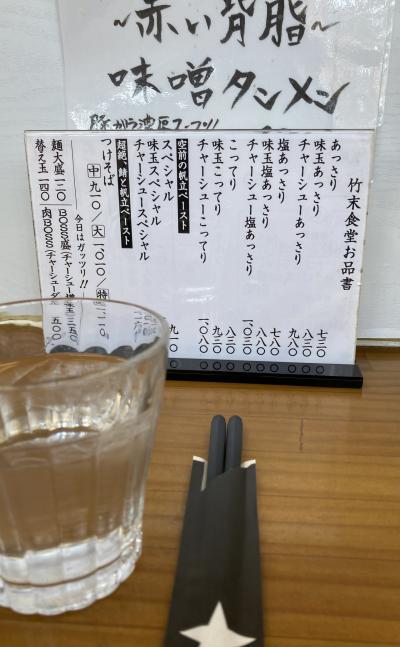 ~赤い背脂~
味噌タンメン
竹末食堂お品書
あっさり 七三〇
味玉あっさり 八三〇
チャーシューあっさり 九八〇
塩あっさり 七八〇
味玉塩あっさり 八八〇
チャーシュー塩あっさり 一〇三〇
こってり 八三〇
味玉こってり 九三〇
チャーシューこってり 一〇八〇
空前の帆立ペースト
スペシャル 九一〇
味玉スペシャル
チャーシュースペシャル
超絶、鯖と帆立ペースト
つけそば
中 九一〇/大 一〇一〇/特
今日はガッツリ!!
麺大盛 一二〇 BOSS盛(チャーシュー増
替え玉 一四〇 肉BOSS(チャーシューダ 五〇〇